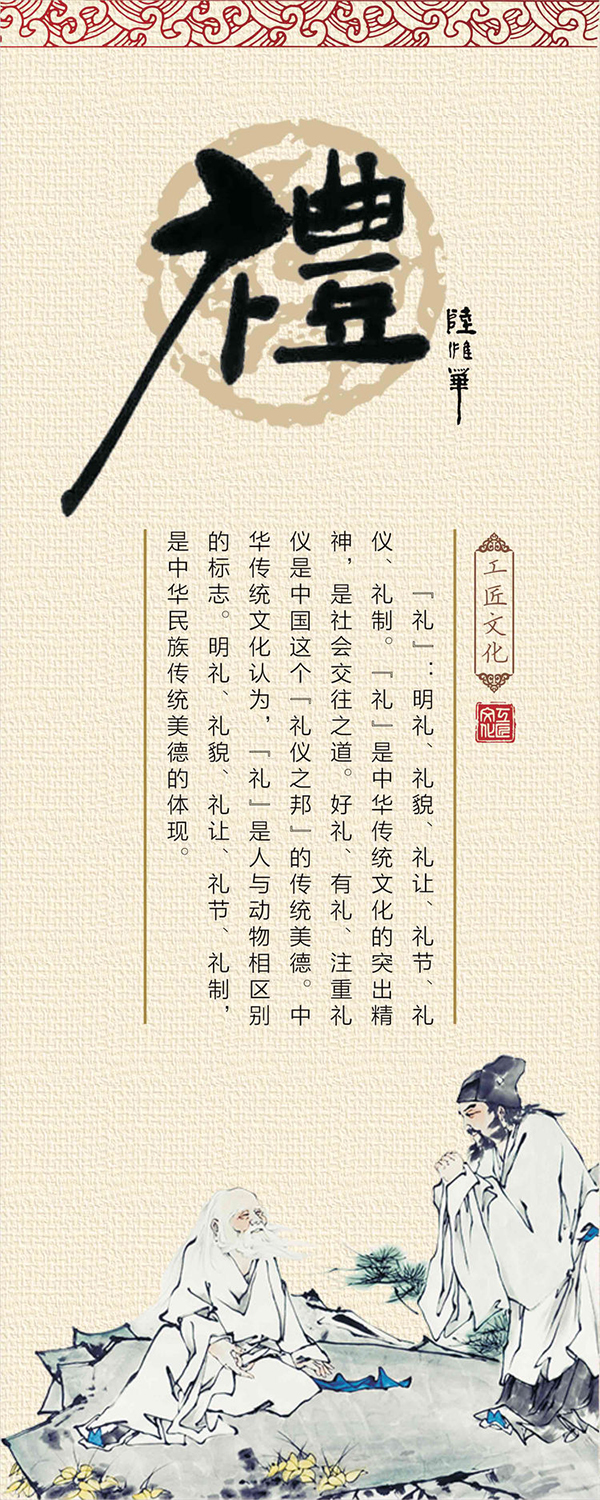 禮
陸惟華
工匠文化
工匠文化
『礼』：明礼、礼貌、礼让、礼节、礼
仪、礼制。『礼』是中华传统文化的突出精
神，是社会交往之道。好礼、有礼、注重礼
仪是中国这个『礼仪之邦』的传统美德。中
华传统文化认为，『礼』是人与动物相区别
的标志。明礼、礼貌、礼让、礼节、礼制，
是中华民族传统美德的体现。